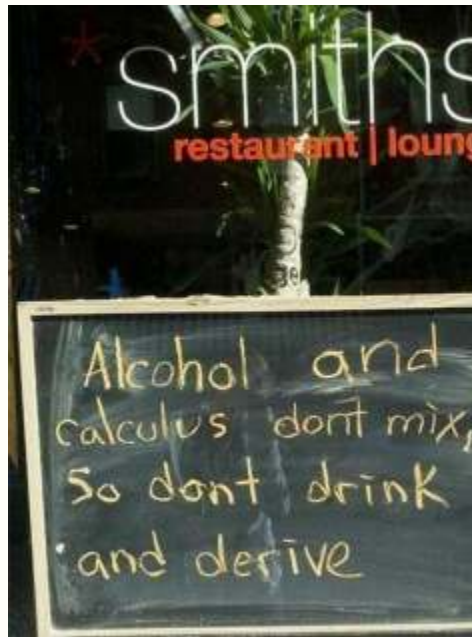 smiths
restaurant | loung
Alcohol and
calculus don't mix,
So dont drink
and derive